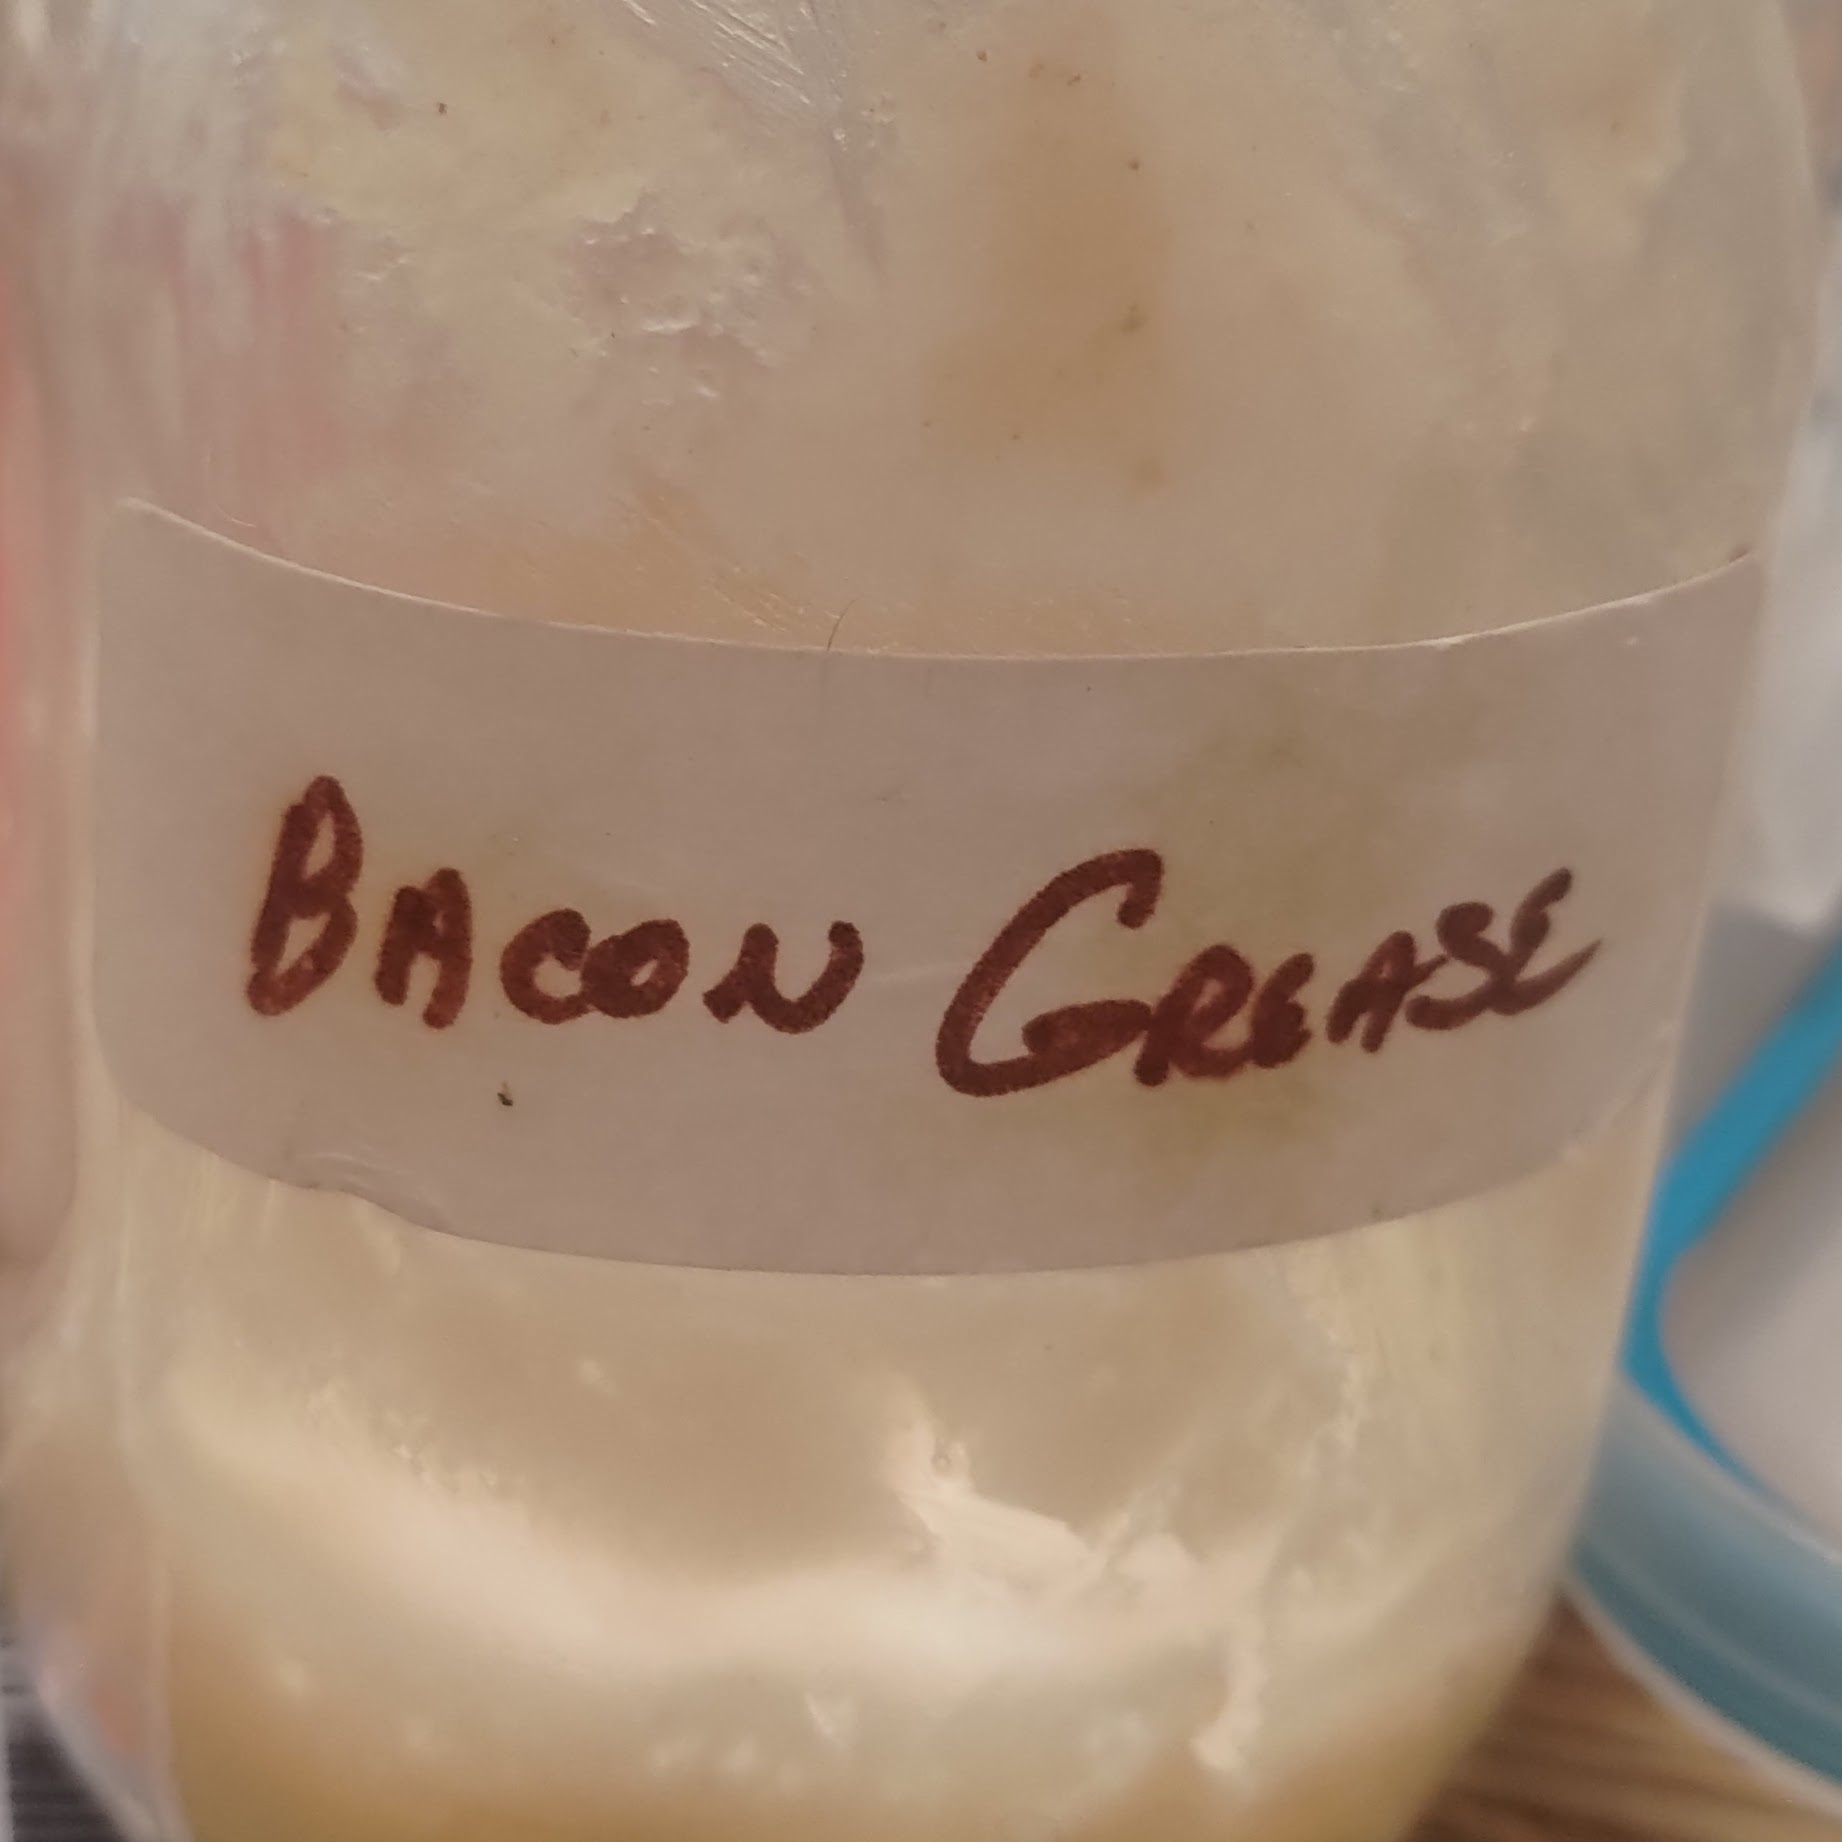 BACON GREASE